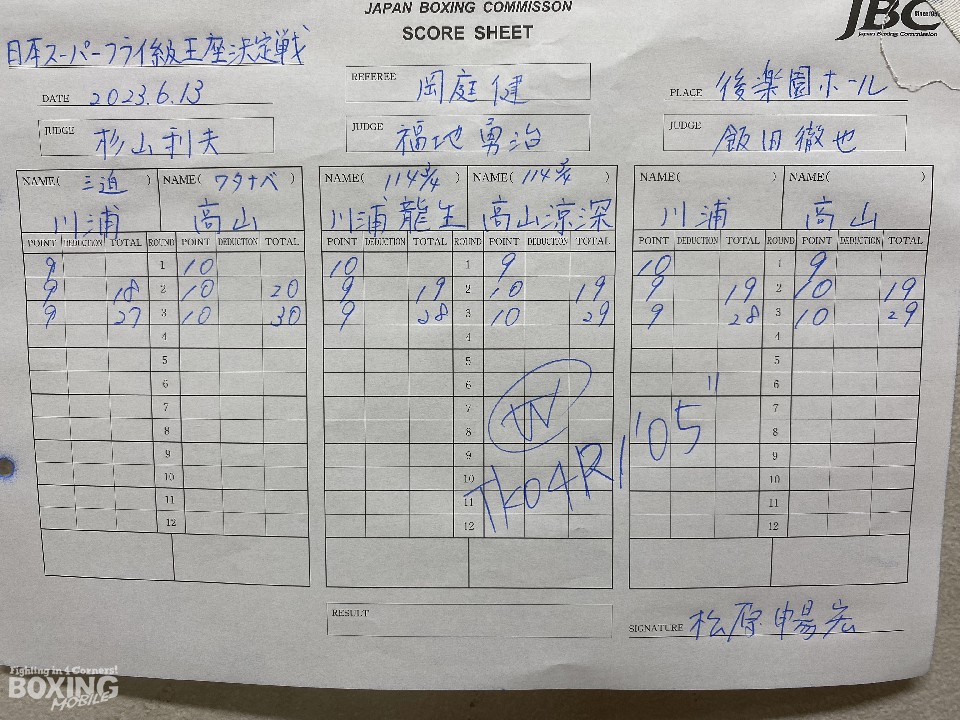 JAPAN BOXING COMMISSON
SCORE SHEET
JBC
Japan Boxing Commission
日本スーパーフライ級王座決定戦
DATE 2023.6.13
REFEREE 岡庭健
PLACE 後楽園ホール
JUDGE 杉山利夫
JUDGE 福地勇治
JUDGE 飯田徹也
NAME( 三迫 ) NAME( ワタナベ ) NAME( 114 3/4 ) NAME( 114 3/4 ) NAME( ) NAME( )
川浦 高山 川浦龍生 高山涼深 川浦 高山
POINT DEDUCTION TOTAL ROUND POINT DEDUCTION TOTAL POINT DEDUCTION TOTAL ROUND POINT DEDUCTION TOTAL POINT DEDUCTION TOTAL ROUND POINT DEDUCTION TOTAL
9 1 10 10 1 9 10 1 9
9 18 2 10 20 9 19 2 10 19 9 19 2 10 19
9 27 3 10 30 9 28 3 10 29 9 28 3 10 29
4 4 4
5 5 5
6 6 6
7 7 7
8 8 8
9 9 9
10 10 10
11 11 11
12 12 12
W
TKO4R1'05"
RESULT
SIGNATURE 松原暢宏
Fighting in 4 Corners!
BOXING
MOBILE